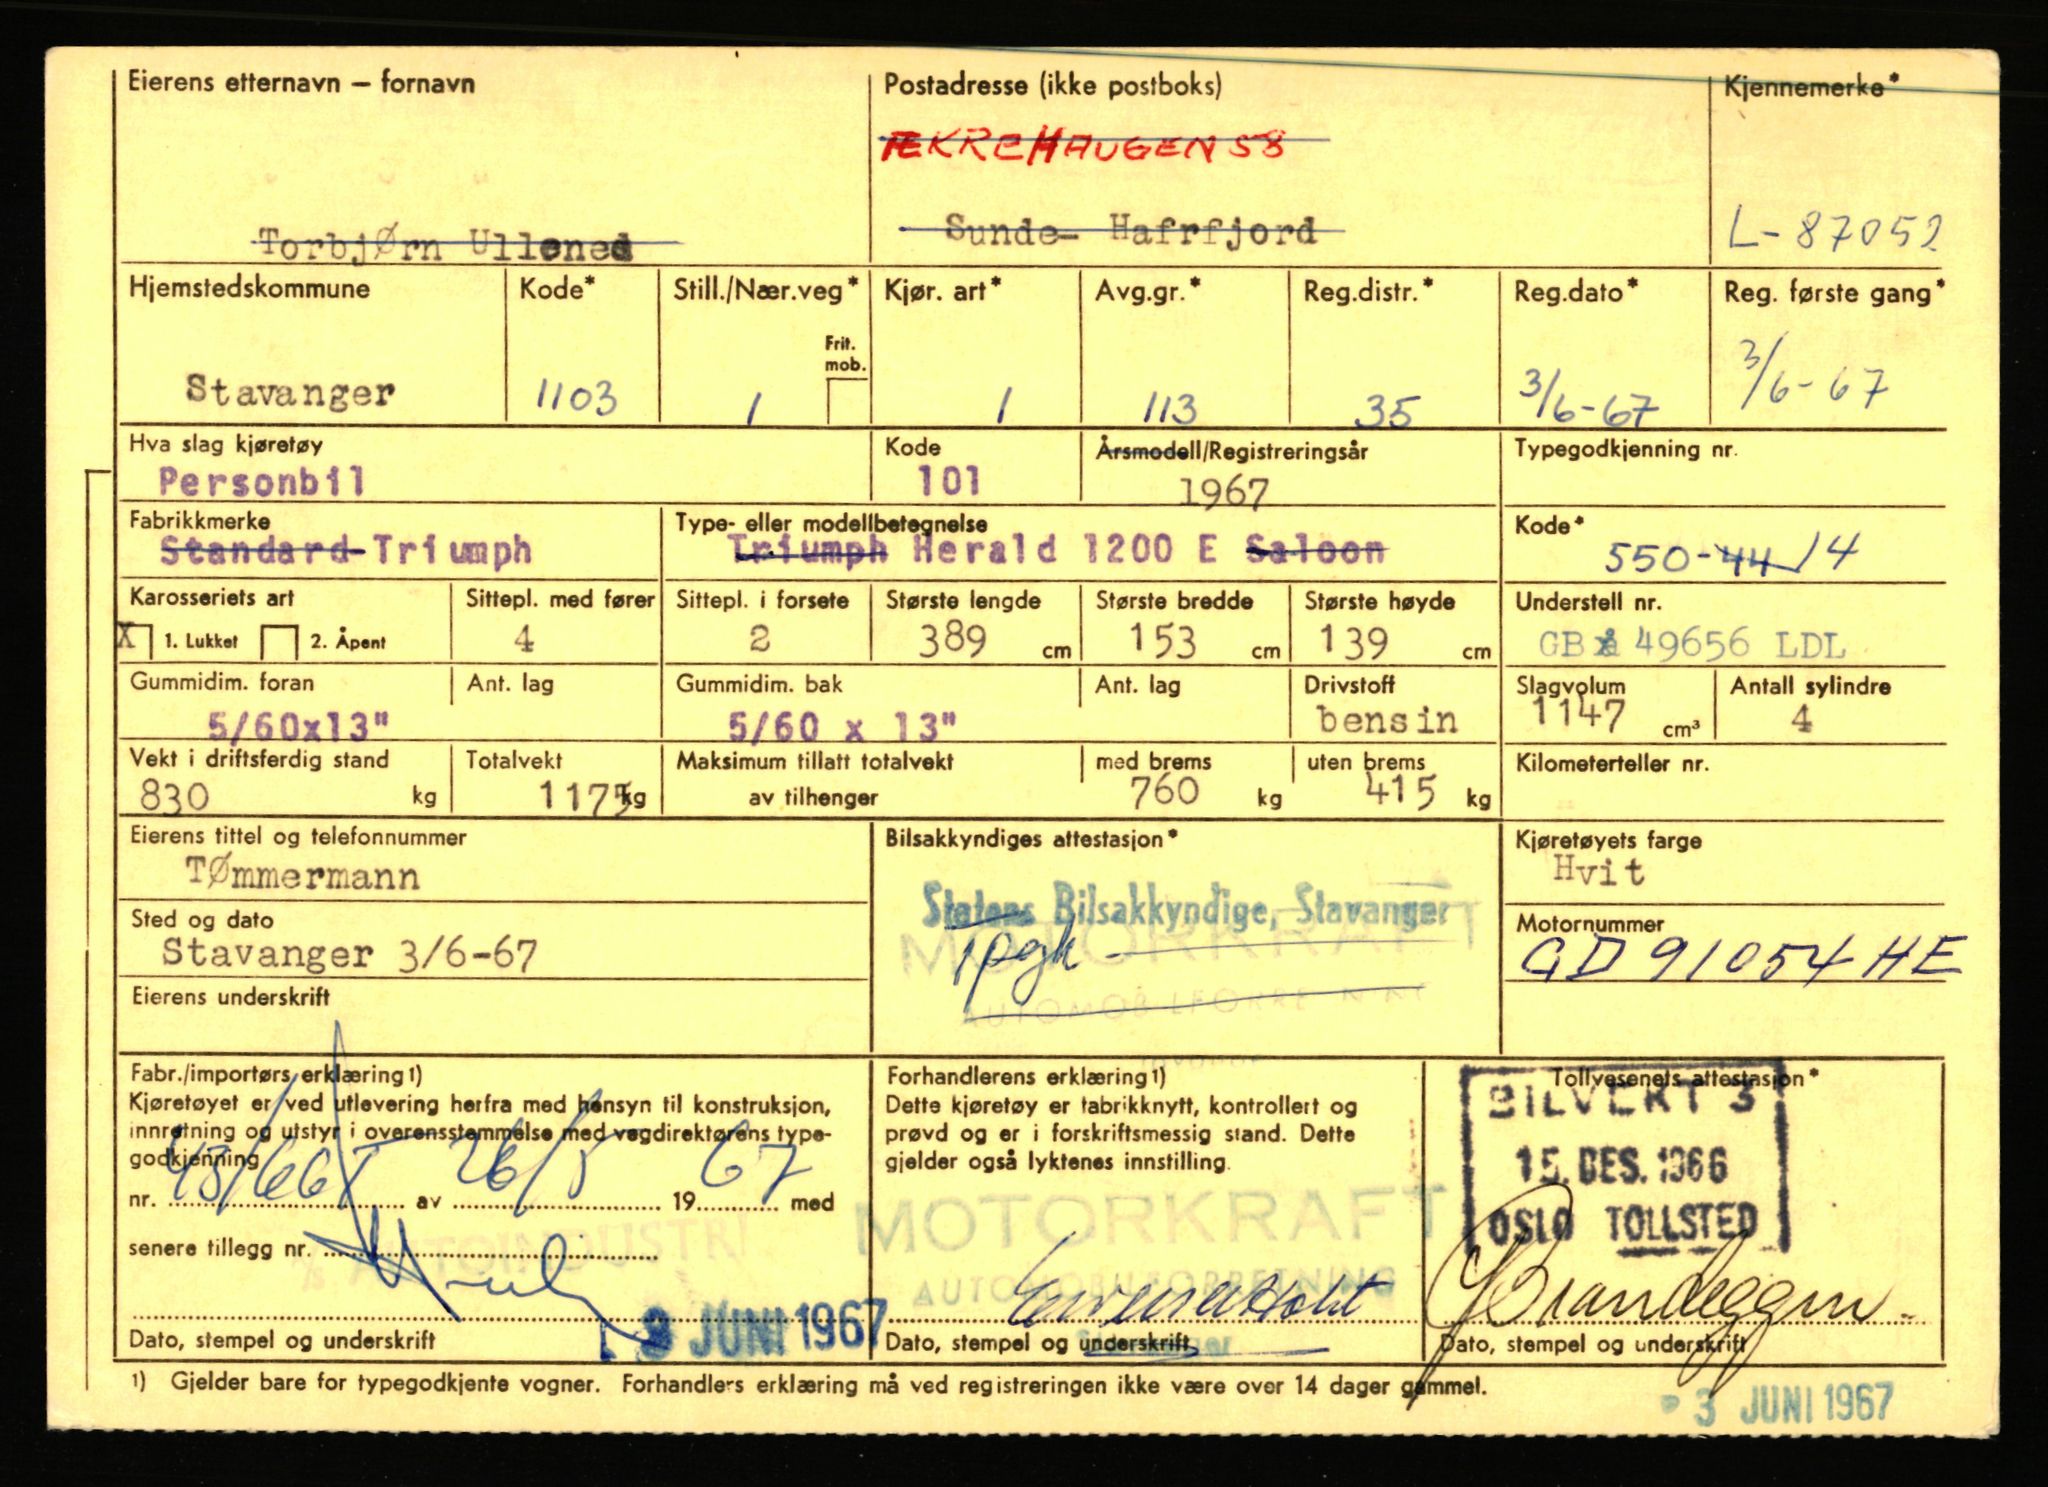 Eierens etternavn – fornavn
Postadresse (ikke postboks)
Kjennemerke*
ÆKREHAUGEN 58
Torbjørn Ullenes
Sunde- Hafrfjord
L-87052
Hjemstedskommune Kode* Still./Nær.veg* Kjør. art* Avg.gr.* Reg.distr.* Reg.dato* Reg. første gang*
Frit.
mob.
Stavanger 1103 1 1 113 35 3/6-67 3/6-67
Hva slag kjøretøy Kode Årsmodell/Registreringsår Typegodkjenning nr.
Personbil 101 1967
Fabrikkmerke Type- eller modellbetegnelse Kode*
Standard-Triumph Triumph Herald 1200 E Saloon 550-44 14
Karosseriets art Sittepl. med fører Sittepl. i forsete Største lengde Største bredde Største høyde Understell nr.
X 1. Lukket 2. Åpent 4 2 389 cm 153 cm 139 cm GB 49656 LDL
Gummidim. foran Ant. lag Gummidim. bak Ant. lag Drivstoff Slagvolum Antall sylindre
5/60x13" 5/60 x 13" bensin 1147 cm³ 4
Vekt i driftsferdig stand Totalvekt Maksimum tillatt totalvekt med brems uten brems Kilometerteller nr.
830 kg 1175 kg av tilhenger 760 kg 415 kg
Eierens tittel og telefonnummer Bilsakkyndiges attestasjon* Kjøretøyets farge
Tømmermann Hvit
Statens Bilsakkyndige, Stavanger
Sted og dato Motornummer
Stavanger 3/6-67 Tpgk MOTORKRAFT GD 91054 HE
Eierens underskrift
AUTOMOBILFORRETNING
Fabr./importørs erklæring1) Forhandlerens erklæring1) Tollvesenets attestasjon*
Kjøretøyet er ved utlevering herfra med hensyn til konstruksjon,
innretning og utstyr i overensstemmelse med vegdirektørens type-
godkjenning
nr. 43/66 I av 26/5 1967 med
senere tillegg nr.
AUTOINDUSTRI
3 JUNI 1967
Dato, stempel og underskrift
Dette kjøretøy er fabrikknytt, kontrollert og
prøvd og er i forskriftsmessig stand. Dette
gjelder også lyktenes innstilling.
MOTORKRAFT
AUTOMOBILFORRETNING
Stavanger
Dato, stempel og underskrift
BILVERT 3
15. DES. 1966
OSLO TOLLSTED
Dato, stempel og underskrift
1) Gjelder bare for typegodkjente vogner. Forhandlers erklæring må ved registreringen ikke være over 14 dager gammel.
3 JUNI 1967